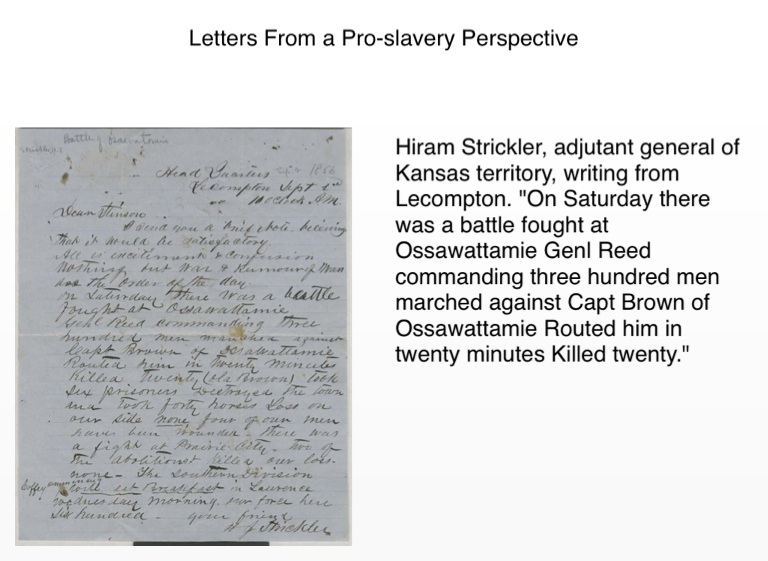 Letters From a Pro-slavery Perspective
Battle of Osawatomie
Head Quarters 1856
Lecompton Sept 1st
10 oclock A.M.
Dear Stinson
I send you a brief note believing
that it would be satisfactory.
All is excitement & confusion
Nothing but War & Rumours of War
are the order of the day.
on Saturday there was a battle
fought at Ossawattamie
Genl Reed commanding three
hundred men marched against
Capt Brown of Ossawattamie
Routed him in twenty minutes
Killed twenty (old Brown) took
six prisoners Destroyed the town
and took forty horses Loss on
our side none four of our men
have been wounded - there was
a fight at Prairie City. two of
the abolitionist killed our loss
none - The Southern Division
will eat Breakfast in Lawrence
wednesday morning. our force here
six hundred - your friend
H J Strickler
Hiram Strickler, adjutant general of
Kansas territory, writing from
Lecompton. "On Saturday there
was a battle fought at
Ossawattamie Genl Reed
commanding three hundred men
marched against Capt Brown of
Ossawattamie Routed him in
twenty minutes Killed twenty."